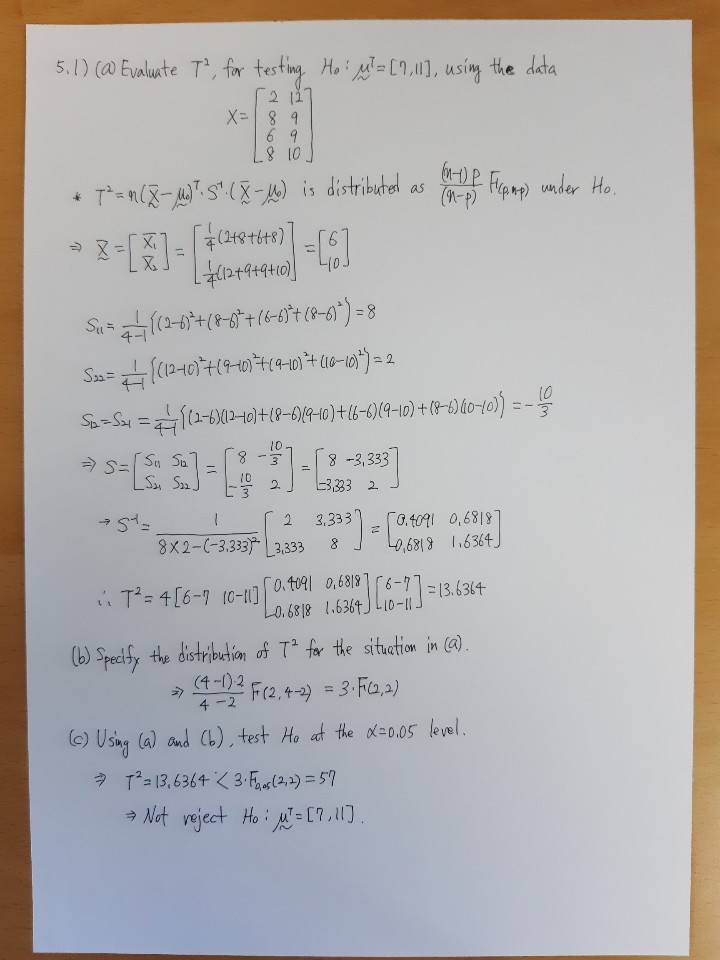 5.1) (a) Evaluate T², for testing H₀: μᵀ=[7,11], using the data
X = [2 12
8 9
6 9
8 10]
* T² = n(X̄-μ₀)ᵀ·S⁻¹·(X̄-μ₀) is distributed as (n-1)p/(n-p) F(p,n-p) under H₀.
⇒ X̄ = [X̄₁ X̄₂] = [1/4(2+8+6+8) 1/4(12+9+9+10)] = [6 10]
S₁₁ = 1/(4-1) {(2-6)²+(8-6)²+(6-6)²+(8-6)²} = 8
S₂₂ = 1/(4-1) {(12-10)²+(9-10)²+(9-10)²+(10-10)²} = 2
S₁₂=S₂₁ = 1/(4-1) {(2-6)(12-10)+(8-6)(9-10)+(6-6)(9-10)+(8-6)(10-10)} = -10/3
⇒ S = [S₁₁ S₁₂ S₂₁ S₂₂] = [8 -10/3 -10/3 2] = [8 -3.333 -3.333 2]
→ S⁻¹ = 1/(8×2-(-3.333)²) [2 3.333 3.333 8] = [0.4091 0.6818 0.6818 1.6364]
∴ T² = 4[6-7 10-11] [0.4091 0.6818 0.6818 1.6364] [6-7 10-11] = 13.6364
(b) Specify the distribution of T² for the situation in (a).
⇒ (4-1)·2/(4-2) F(2,4-2) = 3·F(2,2)
(c) Using (a) and (b), test H₀ at the α=0.05 level.
⇒ T²=13.6364 < 3·F₀.₀₅(2,2) = 57
⇒ Not reject H₀: μᵀ=[7,11].